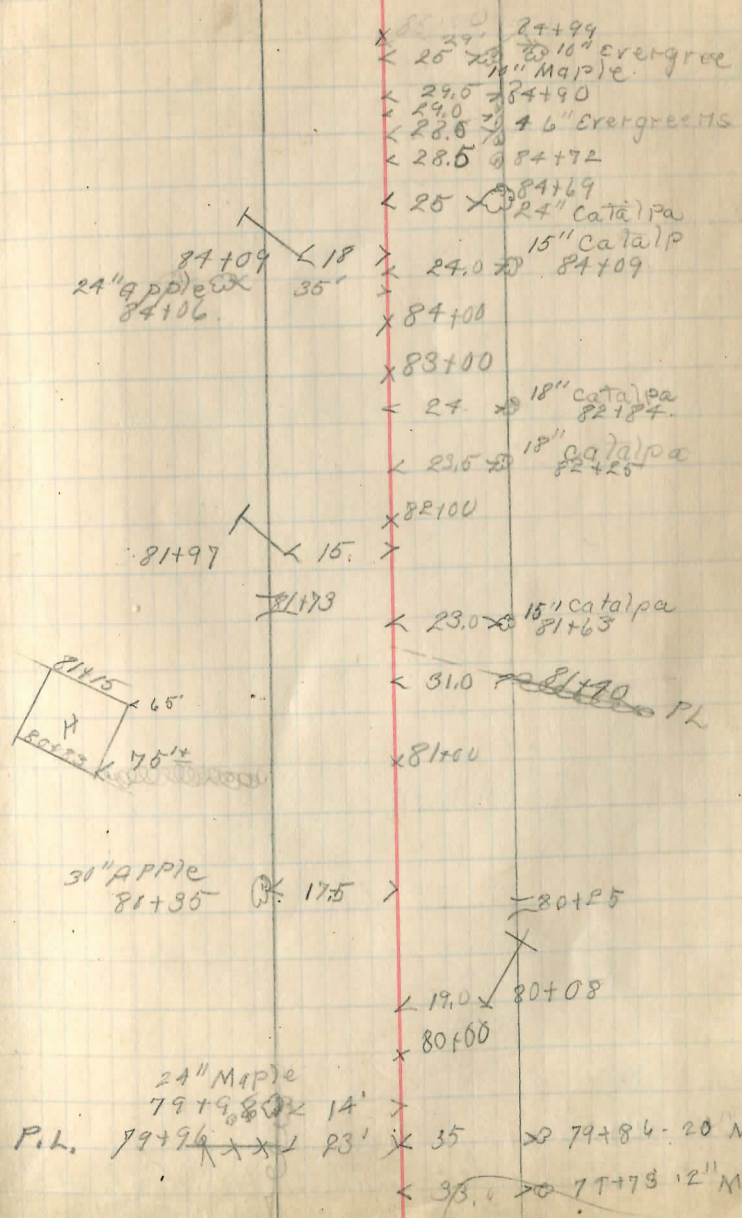 24+99
29'
25 10" Evergree
10" Maple.
29.5 84+90
29.0
28.5 4 6" Evergreens
28.5 84+72
84+69
25 24" Catalpa
15" Catalp
84+09 18
24.0 84+09
24" apple 35'
84+06
84+00
83+00
18" Catalpa
24 82+84.
18" Catalpa
23.5 82+25
82+00
81+97 15.
81+73
15" Catalpa
23.0 81+63
81+15 65'
31.0 81+90 PL
H
75'±
81+00
30" APPle
17.5
80+25
19.0 80+08
80+00
24" Maple
14'
P.L. 79+96 23' 35 79+86-20 M